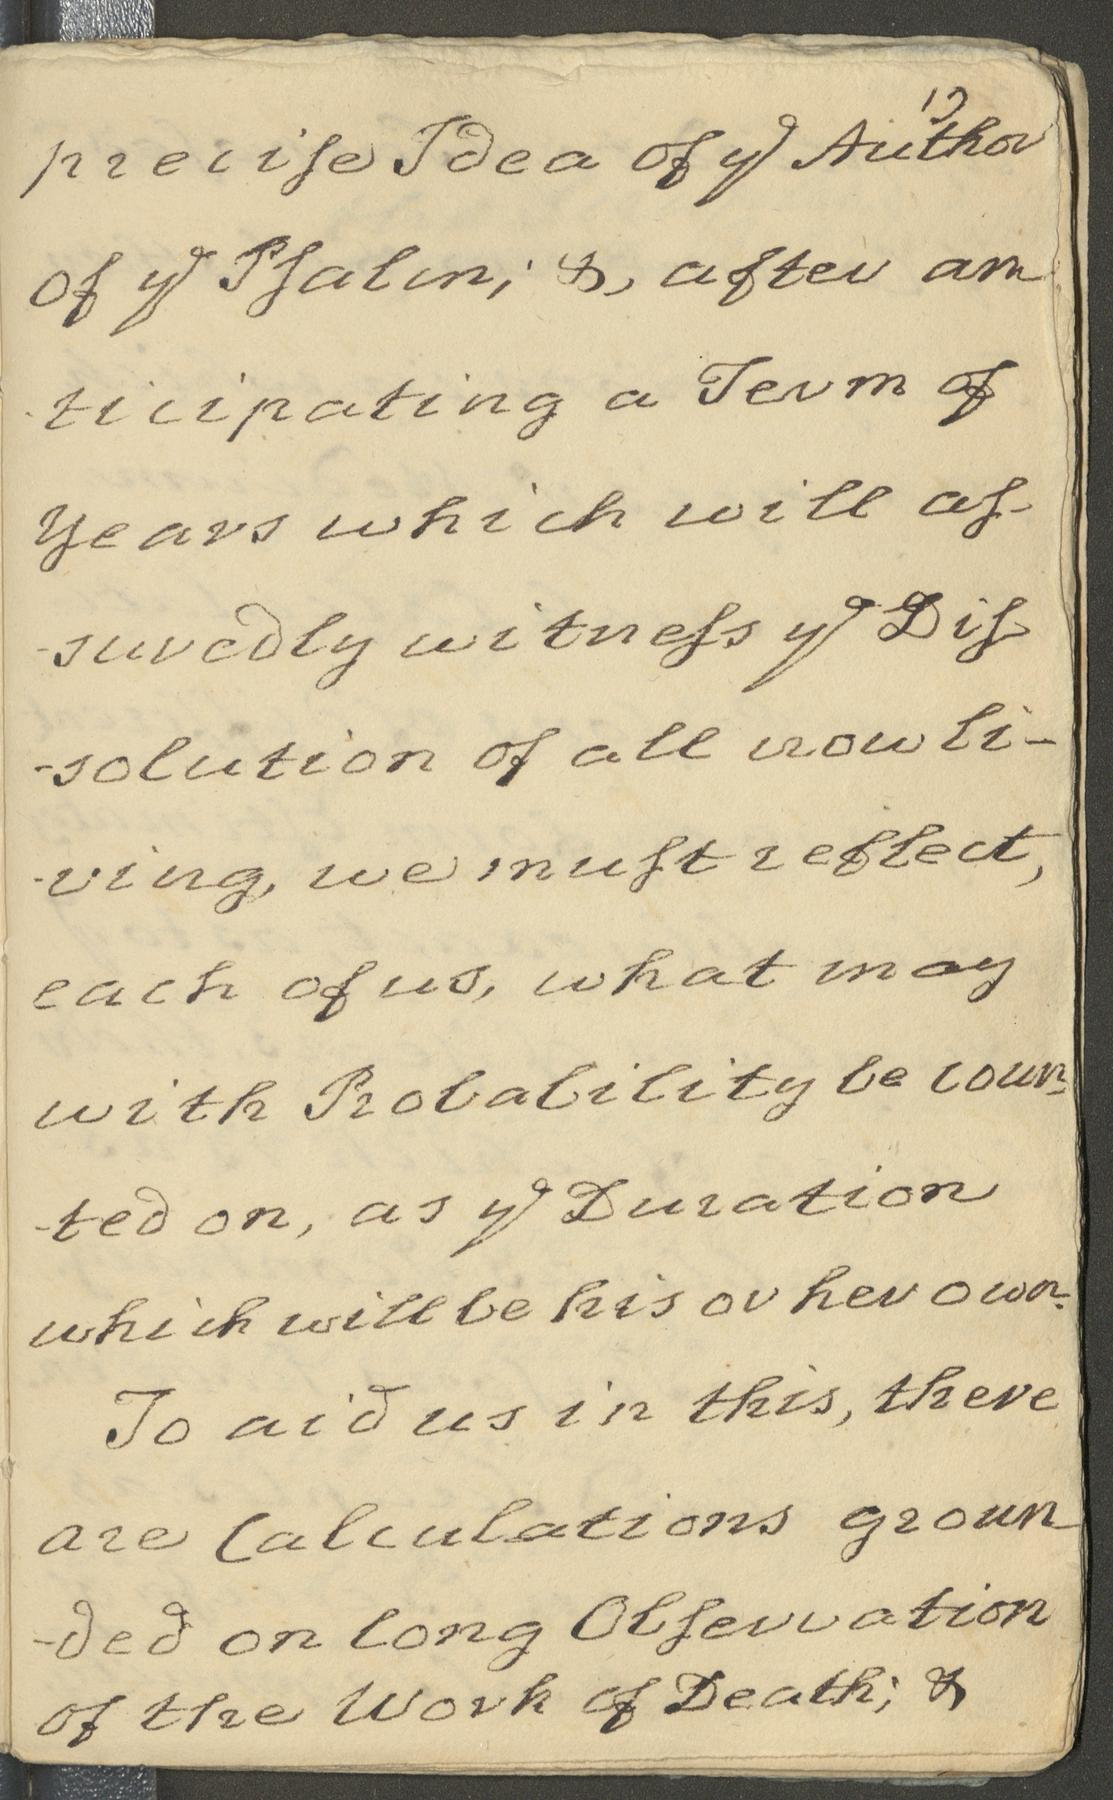 12
precise Idea of ye Author
of ye Psalm; &, after an
ticipating a Term of
Years which will as-
-suredly witness ye Dis
-solution of all now li-
-ving, we must reflect,
each of us, what may
with Probability be coun-
-ted on, as ye Duration
which will be his or her own.
To aid us in this, there
are Calculations groun
-ded on long Observation
of the Work of Death; &